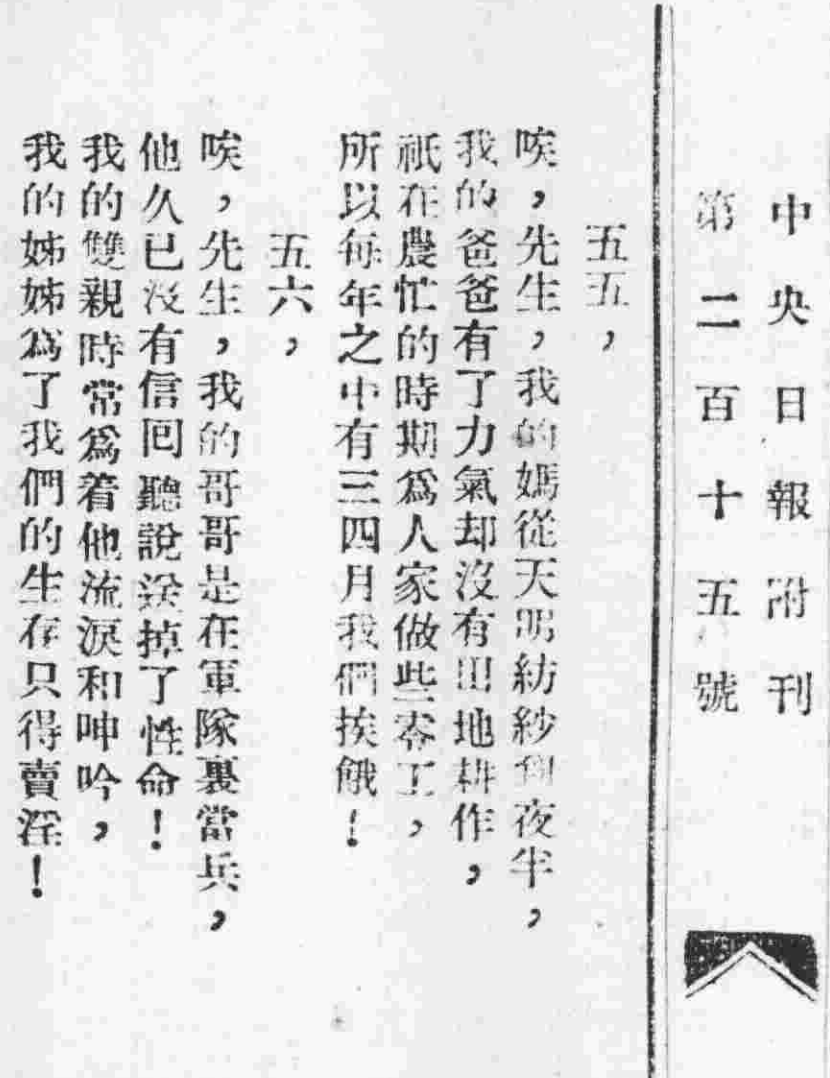 中央日報附刊
第二百十五號
五五，
唉，先生，我的媽從天明紡紗到夜半，
我的爸爸有了力氣却沒有田地耕作，
祇在農忙的時期爲人家做些零工，
所以每年之中有三四月我們挨餓！
五六，
唉，先生，我的哥哥是在軍隊裏當兵，
他久已沒有信回聽說送掉了性命！
我的雙親時常爲着他流淚和呻吟，
我的姊姊爲了我們的生存只得賣淫！